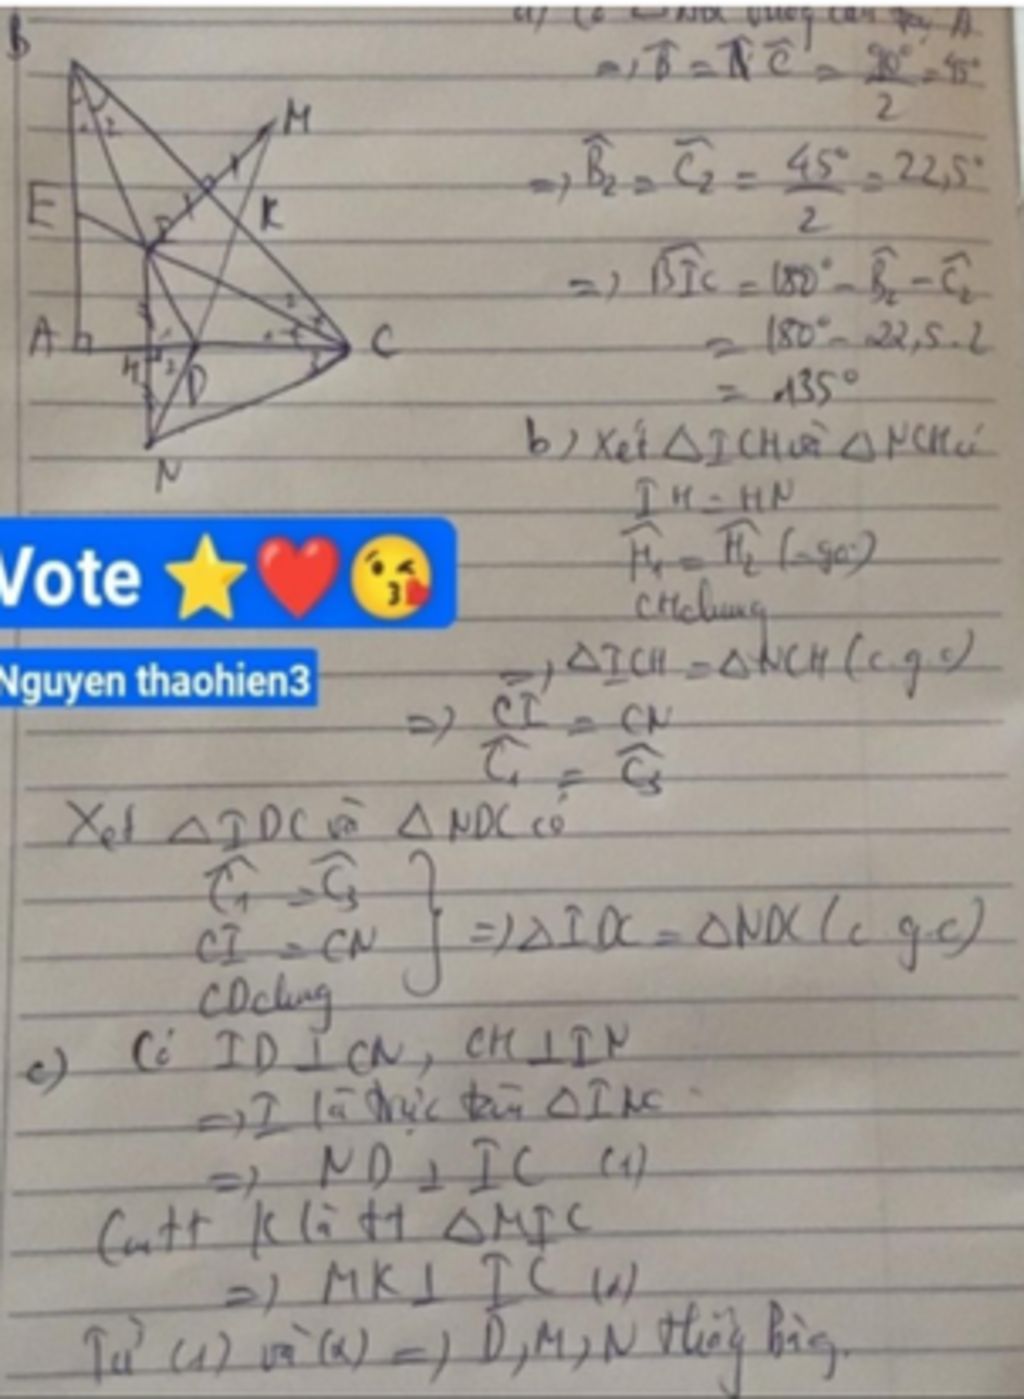 B
M
E
K
A
C
H
D
N
⇒ B̂ = Ĉ = 90°/2 = 45°
⇒ B̂₂ = Ĉ₂ = 45°/2 = 22,5°
⇒ BÎC = 180° - B̂₂ - Ĉ₂
= 180° - 22,5.2
= 135°
b) Xét △ICH và △NCH có
IH = HN
Ĥ₁ = Ĥ₂ (=90°)
CH chung
⇒ △ICH = △NCH (c.g.c)
⇒ CI = CN
Ĉ₁ = Ĉ₃
Vote ⭐❤️😘
Nguyen thaohien3
Xét △IDC và △NDC có
Ĉ₁ = Ĉ₃
CI = CN
CD chung
⇒ △IDC = △NDC (c g.c)
c) Có ID ⊥ CN, CH ⊥ IN
⇒ I là trực tâm △INC
⇒ ND ⊥ IC (1)
Cmtt K là tt △MIC
⇒ MK ⊥ IC (2)
Từ (1) và (2) ⇒ D, M, N thẳng hàng.